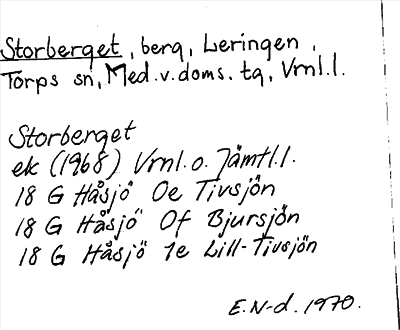 Storberget, berg, Leringen,
Torps sn, Med.v.doms. tg, Vrnl.l.
Storberget
ek (1968) Vrnl.o. Jämtl.l.
18 G Håsjö 0e Tivsjön
18 G Håsjö 0f Bjursjön
18 G Håsjö 1e Lill-Tivsjön
E.N-d. 1970.